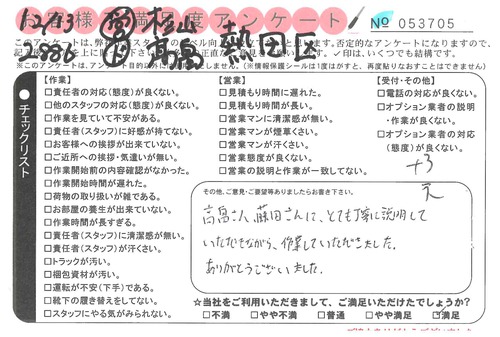 お客様満足度アンケート
12/13
2336
熱田区
No 053705
チェックリスト
【作業】
□責任者の対応(態度)が良くない。
□他のスタッフの対応(態度)が良くない。
□作業を見ていて不安がある。
□責任者(スタッフ)に好感が持てない。
□お客様への挨拶が出来ていない。
□ご近所への挨拶・気遣いが無い。
□作業開始前の内容確認がなかった。
□作業開始時間が遅れた。
□荷物の取り扱いが雑である。
□お部屋の養生が出来ていない。
□作業時間が長すぎる。
□責任者(スタッフ)に清潔感が無い。
□責任者(スタッフ)が汗くさい。
□トラックが汚い。
□梱包資材が汚い。
□運転が不安(下手)である。
□靴下の履き替えをしてない。
□スタッフにやる気がみられない。
【営業】
□見積もり時間に遅れた。
□見積もり時間が長い。
□営業マンに清潔感が無い。
□営業マンが煙草くさい。
□営業マンが汗くさい。
□営業態度が良くない。
□営業の説明と作業が一致してない。
【受付・その他】
□電話の対応が良くない。
□オプション業者の説明
・作業が良くない。
□オプション業者の対応
(態度)が良くない。
+3
その他、ご意見・ご要望等ありましたらお書き下さい。
高畠さん、藤田さんに、とても丁寧に説明して
いただきながら、作業していただきました。
ありがとうございました。
☆当社をご利用いただきまして、ご満足いただけたでしょうか?
□不満 □やや不満 □普通 □やや満足 ☑満足